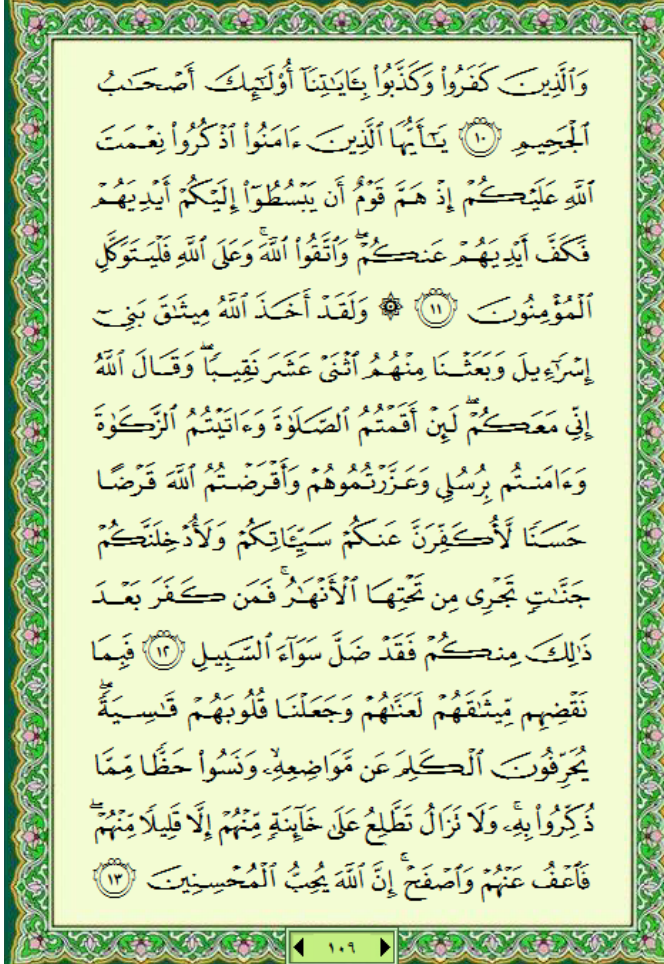 وَٱلَّذِينَ كَفَرُوا۟ وَكَذَّبُوا۟ بِـَٔايَـٰتِنَآ أُو۟لَـٰٓئِكَ أَصْحَـٰبُ
ٱلْجَحِيمِ ١٠ يَـٰٓأَيُّهَا ٱلَّذِينَ ءَامَنُوا۟ ٱذْكُرُوا۟ نِعْمَتَ
ٱللَّهِ عَلَيْكُمْ إِذْ هَمَّ قَوْمٌ أَن يَبْسُطُوٓا۟ إِلَيْكُمْ أَيْدِيَهُمْ
فَكَفَّ أَيْدِيَهُمْ عَنكُمْ ۖ وَٱتَّقُوا۟ ٱللَّهَ ۚ وَعَلَى ٱللَّهِ فَلْيَتَوَكَّلِ
ٱلْمُؤْمِنُونَ ١١ ۞ وَلَقَدْ أَخَذَ ٱللَّهُ مِيثَـٰقَ بَنِىٓ
إِسْرَٰٓءِيلَ وَبَعَثْنَا مِنْهُمُ ٱثْنَىْ عَشَرَ نَقِيبًا ۖ وَقَالَ ٱللَّهُ
إِنِّى مَعَكُمْ ۖ لَئِنْ أَقَمْتُمُ ٱلصَّلَوٰةَ وَءَاتَيْتُمُ ٱلزَّكَوٰةَ
وَءَامَنتُم بِرُسُلِى وَعَزَّرْتُمُوهُمْ وَأَقْرَضْتُمُ ٱللَّهَ قَرْضًا
حَسَنًا لَّأُكَفِّرَنَّ عَنكُمْ سَيِّـَٔاتِكُمْ وَلَأُدْخِلَنَّكُمْ
جَنَّـٰتٍ تَجْرِى مِن تَحْتِهَا ٱلْأَنْهَـٰرُ ۚ فَمَن كَفَرَ بَعْدَ
ذَٰلِكَ مِنكُمْ فَقَدْ ضَلَّ سَوَآءَ ٱلسَّبِيلِ ١٢ فَبِمَا
نَقْضِهِم مِّيثَـٰقَهُمْ لَعَنَّـٰهُمْ وَجَعَلْنَا قُلُوبَهُمْ قَـٰسِيَةً ۖ
يُحَرِّفُونَ ٱلْكَلِمَ عَن مَّوَاضِعِهِۦ ۙ وَنَسُوا۟ حَظًّا مِّمَّا
ذُكِّرُوا۟ بِهِۦ ۚ وَلَا تَزَالُ تَطَّلِعُ عَلَىٰ خَآئِنَةٍ مِّنْهُمْ إِلَّا قَلِيلًا مِّنْهُمْ ۖ
فَٱعْفُ عَنْهُمْ وَٱصْفَحْ ۚ إِنَّ ٱللَّهَ يُحِبُّ ٱلْمُحْسِنِينَ ١٣
١٠٩